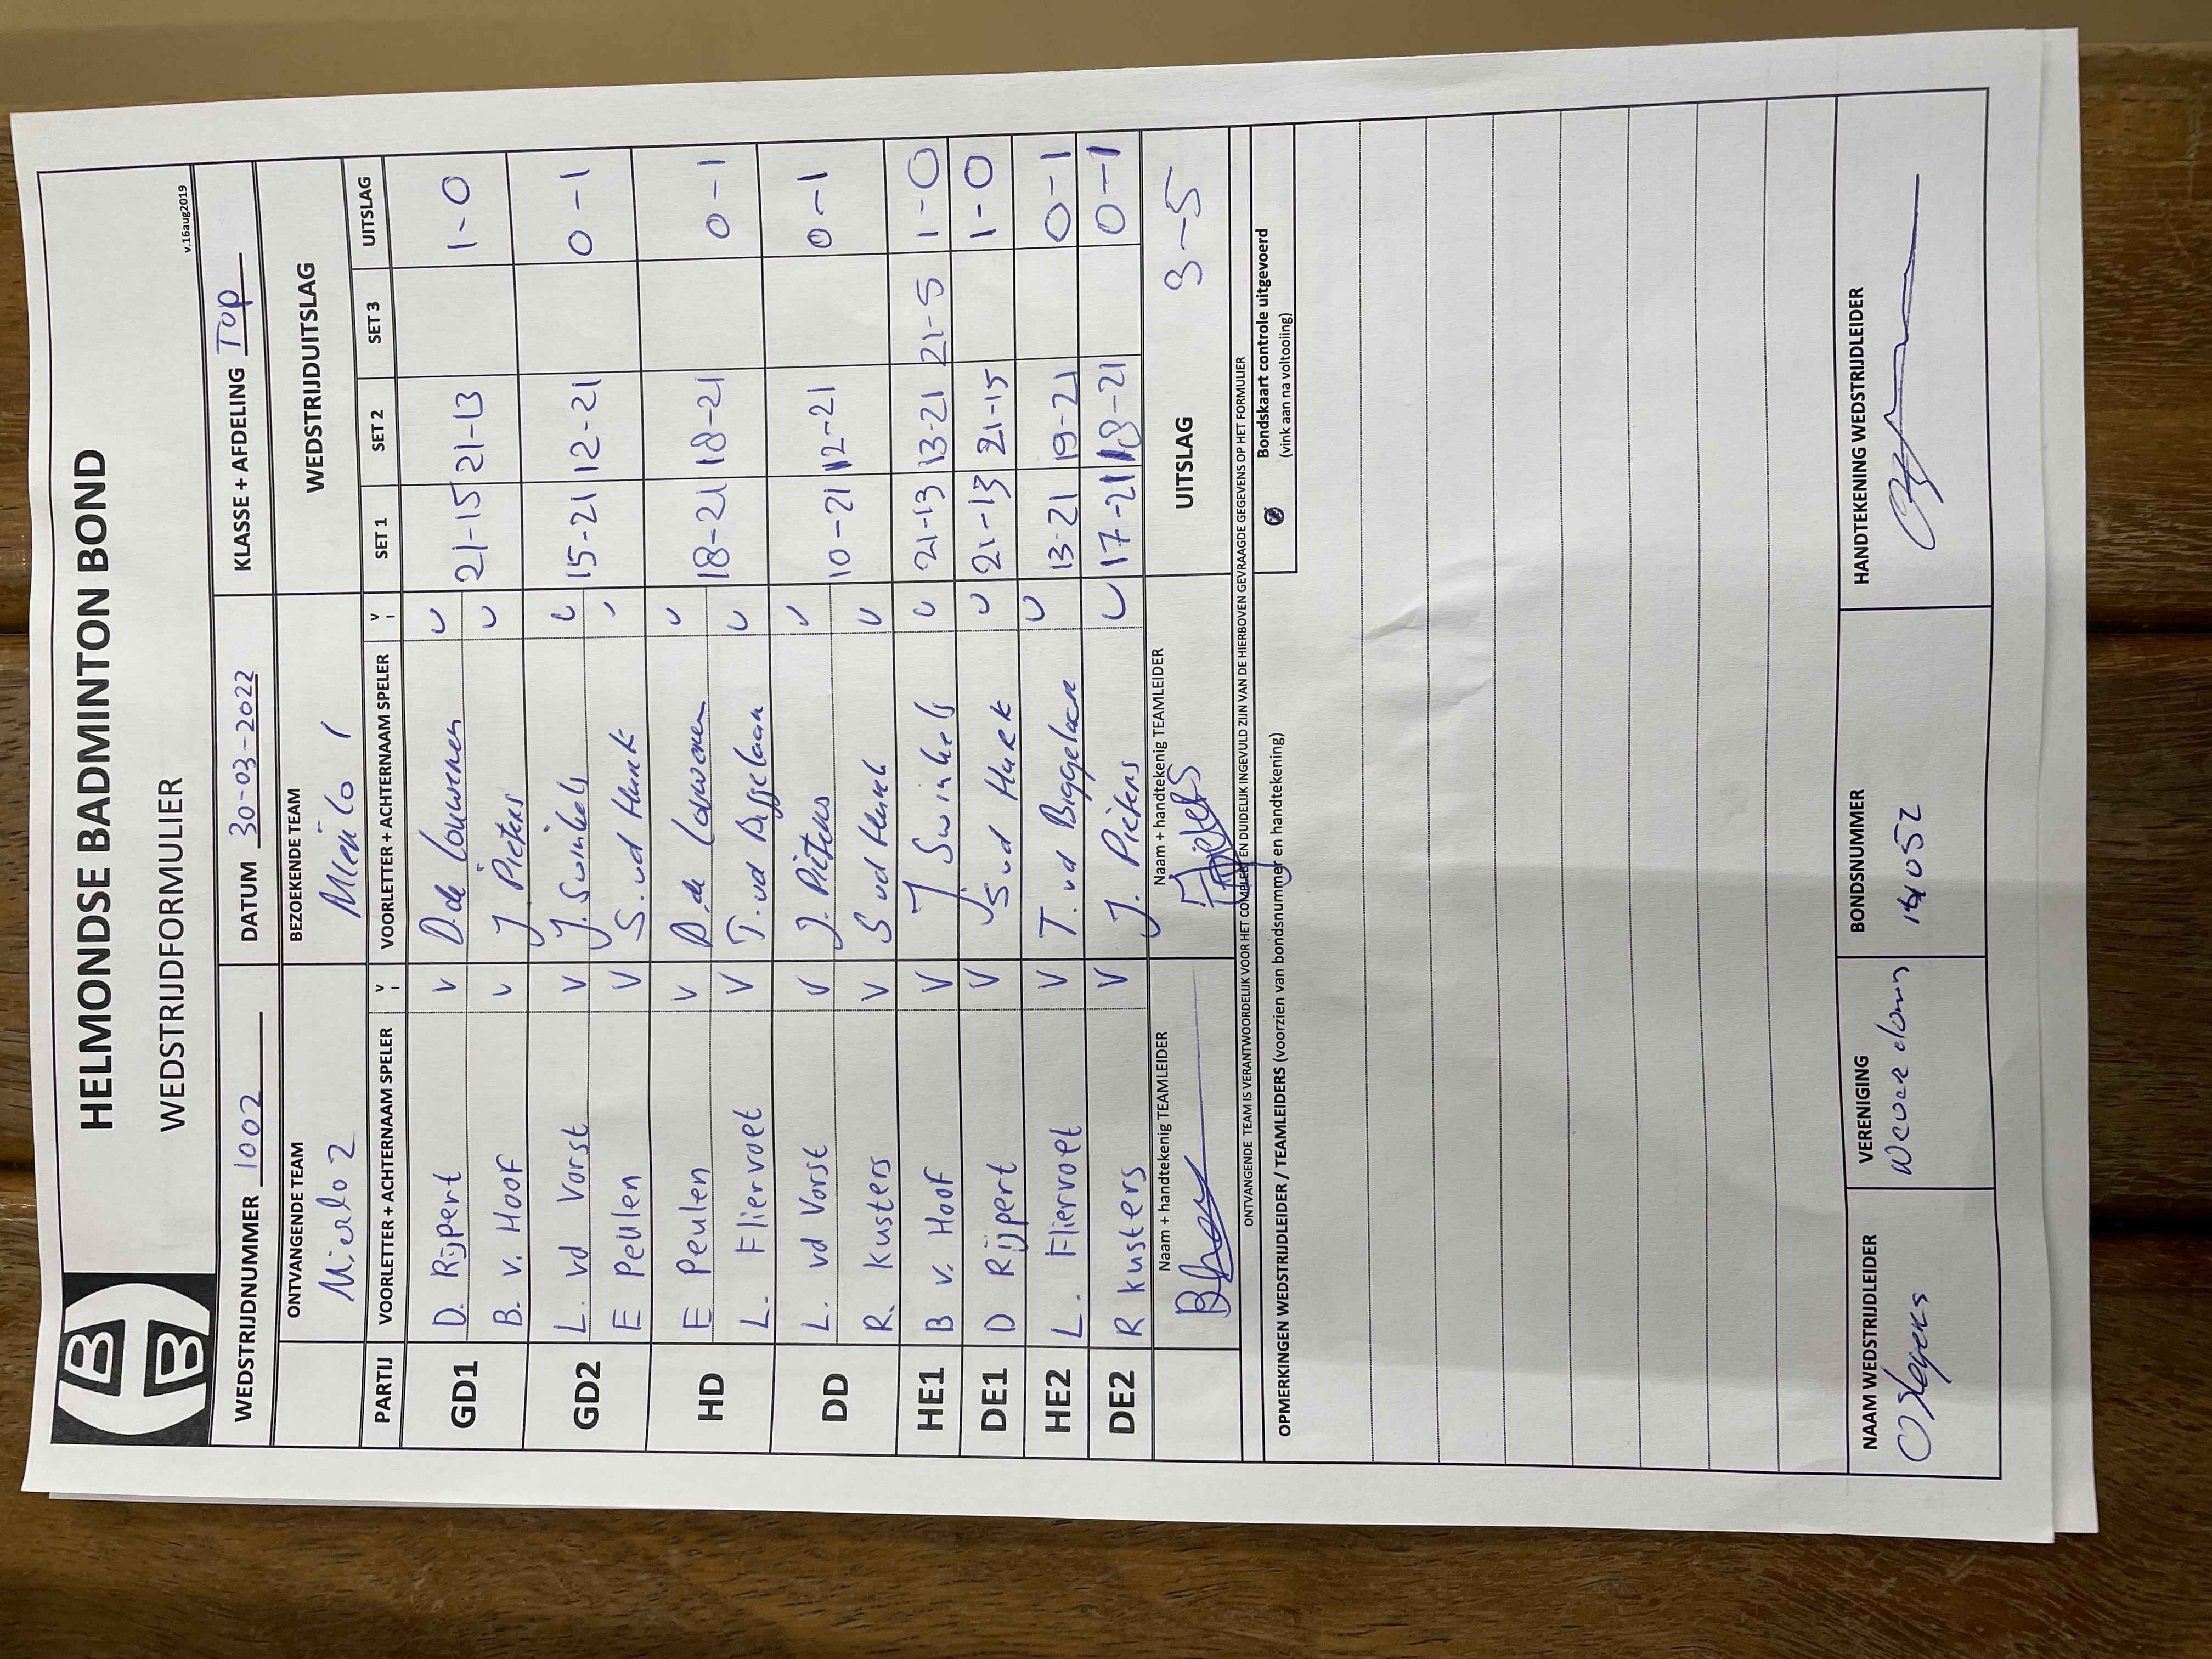 HELMONDSE BADMINTON BOND
WEDSTRIJDFORMULIER
v.16aug2019
WEDSTRIJDNUMMER 1002 DATUM 30-03-2022 KLASSE + AFDELING Top
ONTVANGENDE TEAM BEZOEKENDE TEAM WEDSTRIJDUITSLAG
Mierlo 2 Mierlo 1
PARTIJ VOORLETTER + ACHTERNAAM SPELER V VOORLETTER + ACHTERNAAM SPELER V SET 1 SET 2 SET 3 UITSLAG
GD1 D. Rijpert V D. de Louweren V 21-15 21-13 1-0
B. v. Hoof V J Pieters V
GD2 L. vd Vorst V J. Swinkels V 15-21 12-21 0-1
E Peulen V S. vd Hurk V
HD E Peulen V D. de Louweren V 18-21 18-21 0-1
L. Fliervoet V T. vd Biggelaar V
DD L. vd Vorst V J. Pieters V 10-21 12-21 0-1
R. Kusters V S vd Hurk V
HE1 B v. Hoof V J Swinkels V 21-13 13-21 21-5 1-0
DE1 D Rijpert V S vd Hurk V 21-13 21-15 1-0
HE2 L. Fliervoet V T. vd Biggelaar V 13-21 19-21 0-1
DE2 R Kusters V J. Pieters V 17-21 18-21 0-1
Naam + handtekenig TEAMLEIDER Naam + handtekenig TEAMLEIDER UITSLAG 3-5
ONTVANGENDE TEAM IS VERANTWOORDELIJK VOOR HET COMPLEET EN DUIDELIJK INGEVULD ZIJN VAN DE HIERBOVEN GEVRAAGDE GEGEVENS OP HET FORMULIER
OPMERKINGEN WEDSTRIJDLEIDER / TEAMLEIDERS (voorzien van bondsnummer en handtekening)
Bondskaart controle uitgevoerd
(vink aan na voltooiing)
NAAM WEDSTRIJDLEIDER VERENIGING BONDSNUMMER HANDTEKENING WEDSTRIJDLEIDER